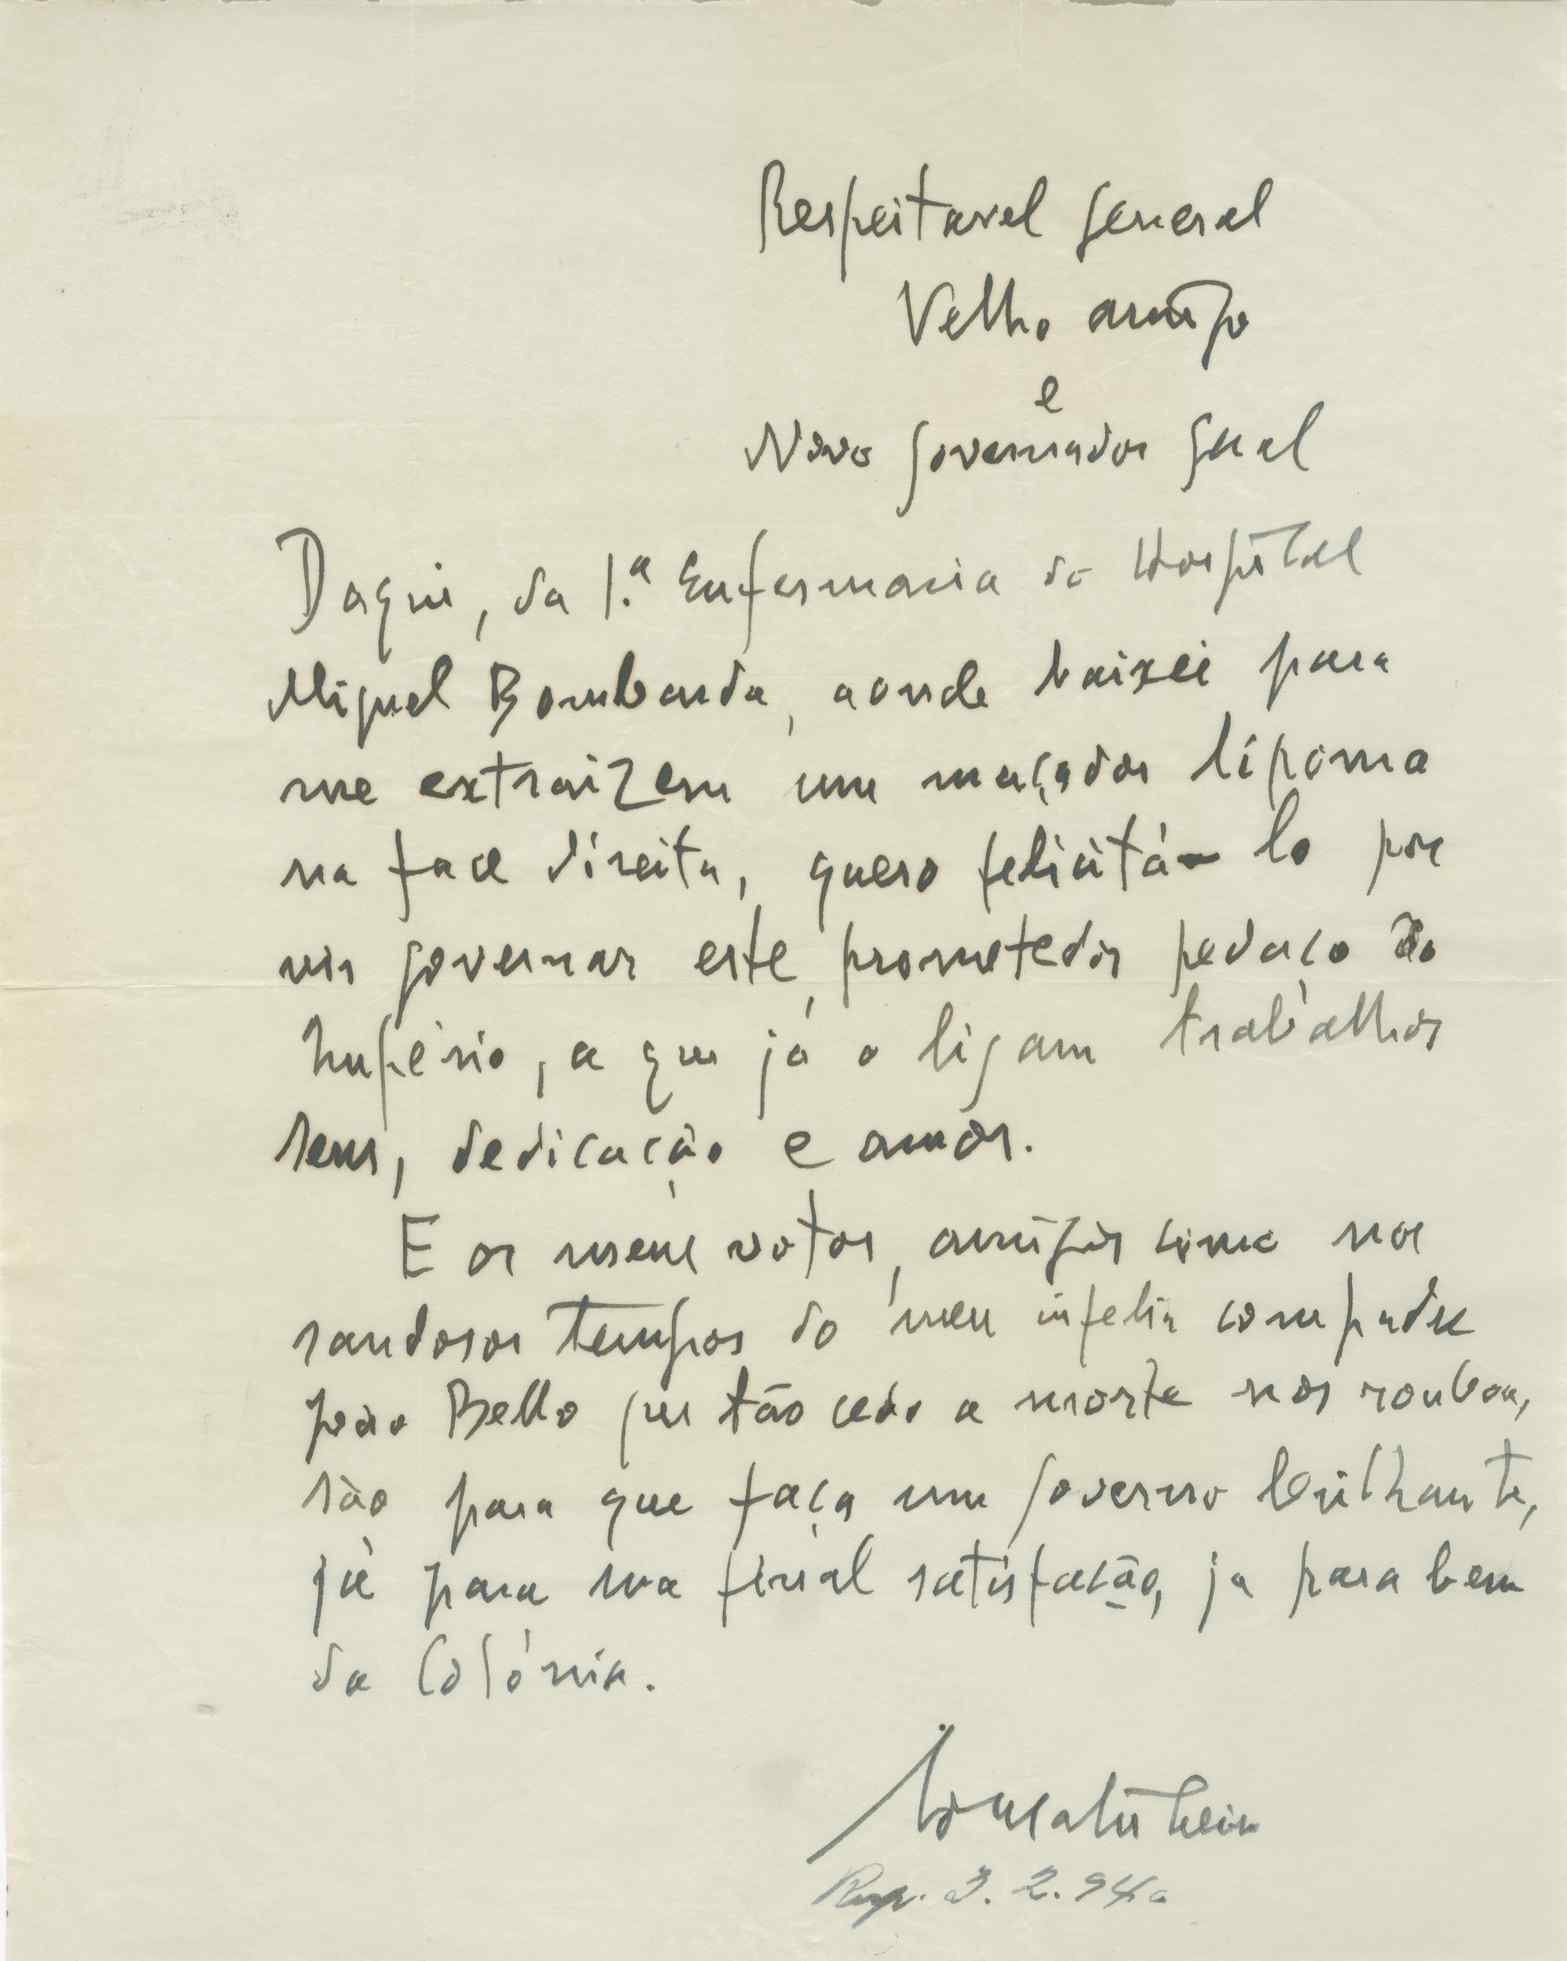 Respeitavel General
Velho amigo
e
Novo Governador Geral
Daqui, da 1.ª Enfermaria do Hospital
Miguel Bombarda, aonde baixei para
me extraizem um maçador lipoma
na face direita, quero felicitá-lo por
vir governar este, prometedor pedaço do
Império, a que já o ligam trabalhos
seus, dedicação e amor.
E os meus votos, amigos como nos
saudosos tempos do meu infeliz compadre
João Bello que tão cedo a morte nos roubou,
são para que faça um Governo brilhante,
já para sua final satisfação, já para bem
da Colónia.
Resp. 3.2.940